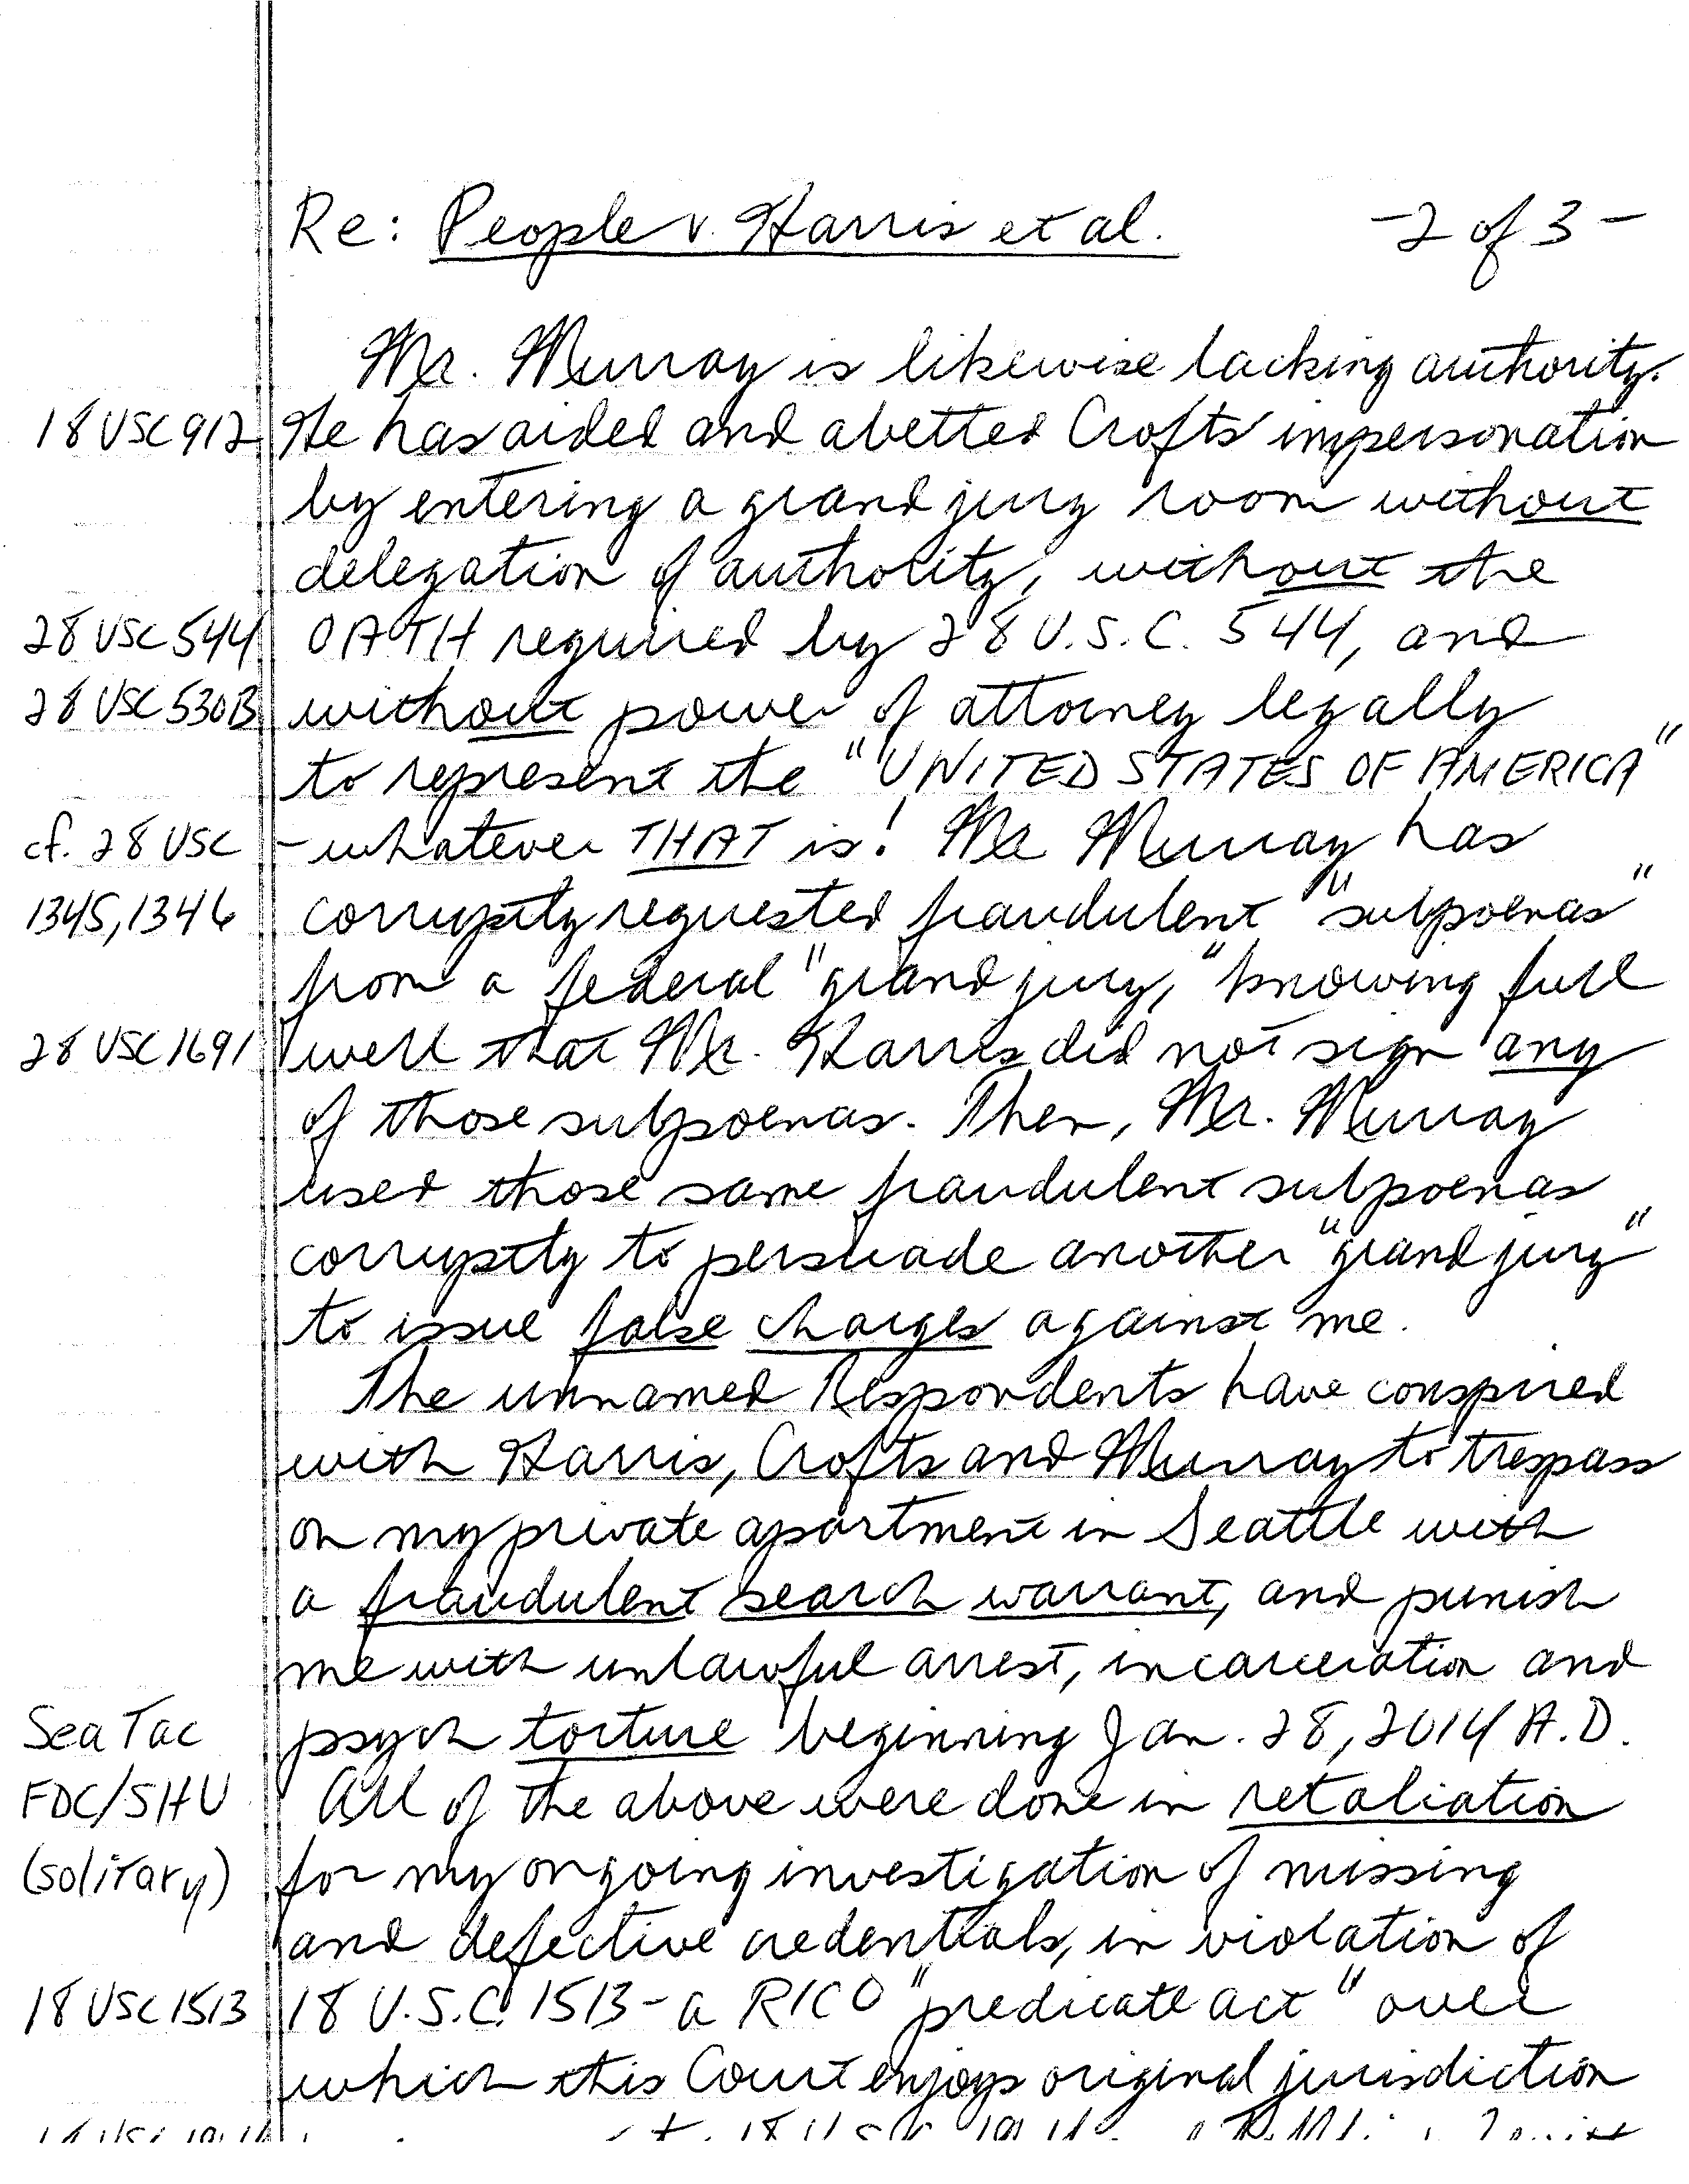 Re: People v. Harris et al. -2 of 3-
Mr. Murray is likewise lacking authority.
18 USC 912 He has aided and abetted Crofts' impersonation
by entering a grand jury room without
delegation of authority, without the
28 USC 544 OATH required by 28 U.S.C. 544, and
28 USC 530B without power of attorney legally
to represent the "UNITED STATES OF AMERICA"
cf. 28 USC - whatever THAT is! Mr. Murray has
1345, 1346 corruptly requested fraudulent "subpoenas"
from a federal "grand jury," knowing full
28 USC 1691 well that Mr. Harris did not sign any
of those subpoenas. Then, Mr. Murray
used those same fraudulent subpoenas
corruptly to persuade another "grand jury"
to issue false charges against me.
The unnamed Respondents have conspired
with Harris, Crofts and Murray to trespass
on my private apartment in Seattle with
a fraudulent search warrant, and punish
me with unlawful arrest, incarceration and
SeaTac psych torture beginning Jan. 28, 2014 A.D.
FDC/SHU All of the above were done in retaliation
(solitary) for my ongoing investigation of missing
and defective credentials, in violation of
18 USC 1513 18 U.S.C. 1513 - a RICO "predicate act" over
which this Court enjoys original jurisdiction